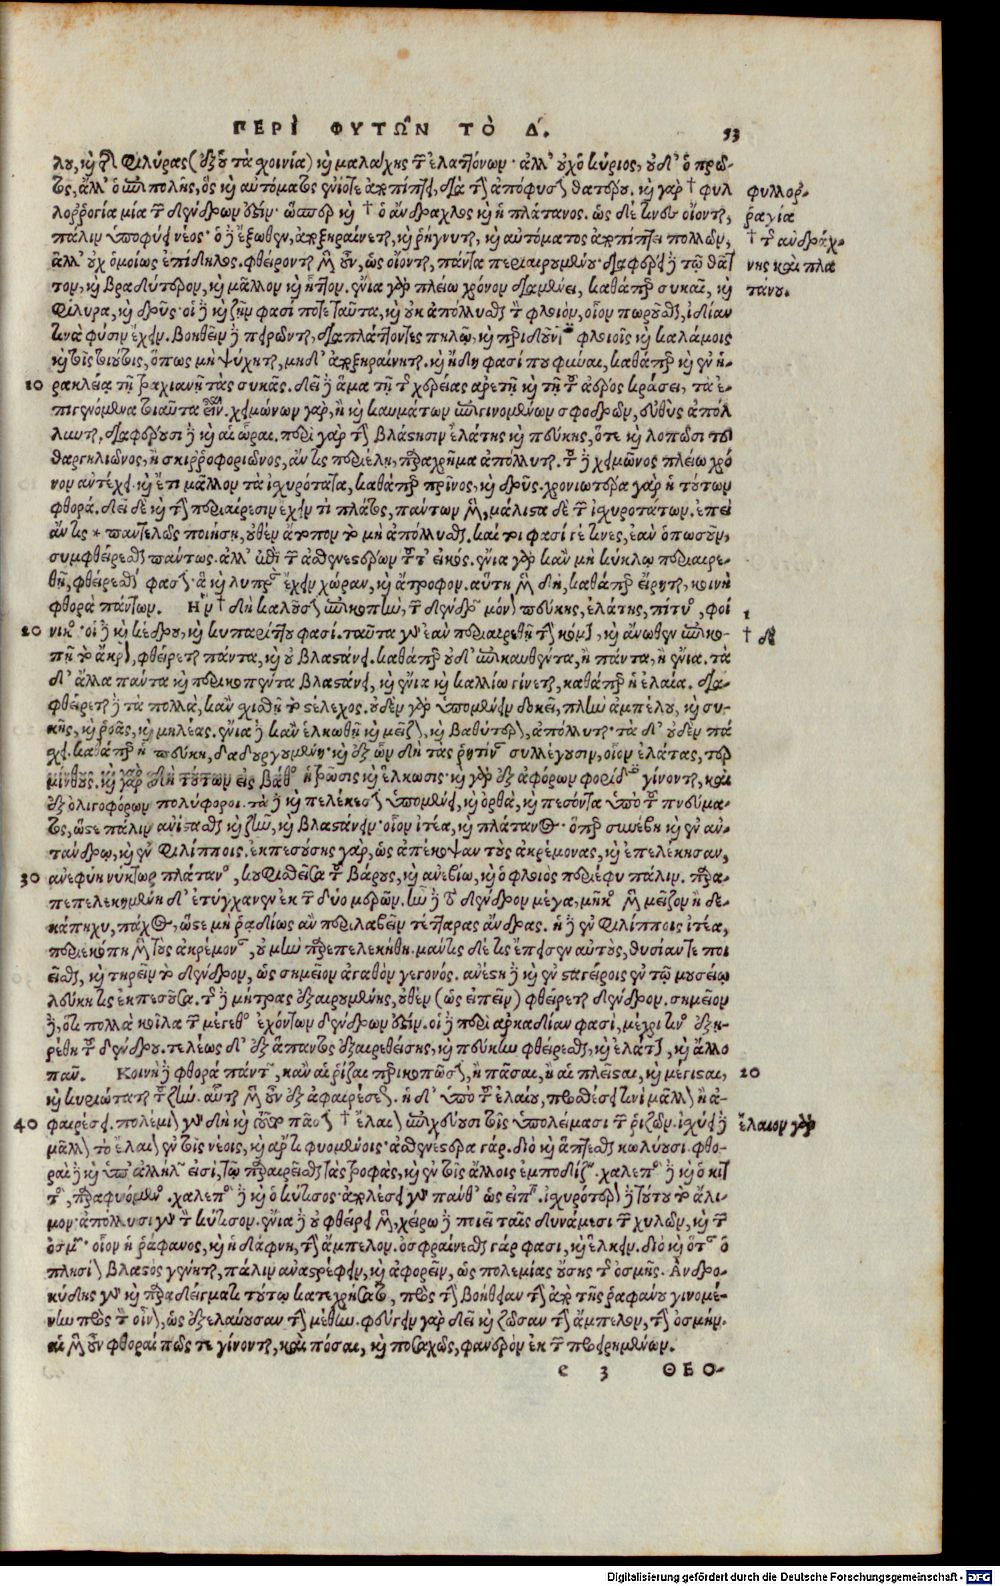 ΠΕΡῚ ΦΥΤΩ͂Ν ΤῸ Δ. 53
λου, καὶ τῆς φιλύρας (ἐξ οὗ τὰ σχοινία) καὶ μαλάχης τῶν ἐλαττόνων· ἀλλ' οὐχ ὁ κύριος, οὐδ' ὁ πρῶ-
τος, ἀλλ' ὁ ἐπιπολῆς, ὃς καὶ αὐτόματος ἐνίοτε ἀποπίπτει, διὰ τὴν ἀπόφυσιν θατέρου. καὶ γὰρ † φυλ
λορρογία μία τῶν δένδρων οὐσῶν· ὥσπερ καὶ † ὁ ἄνδραχλος καὶ ἡ πλάτανος. ὡς δέ τινες οἴονται,
πάλιν ὑποφύει νέος· ὁ δὲ ἔξωθεν, ἀποξηραίνεται, καὶ ῥήγνυται, καὶ αὐτόματος ἀποπίπτει πολλῶν,
ἀλλ' οὐχ ὁμοίως ἐπίδηλος. φθείρονται μὲν οὖν, ὡς οἴονται, πάντα περιαιρουμένου· διαφέρει δὲ τῷ θᾶτ
τον, καὶ βραδύτερον, καὶ μᾶλλον καὶ ἧττον. ἔνια γὰρ πλείω χρόνον διαμένει, καθάπερ συκαῖ, καὶ
φίλυρα, καὶ δρῦς· οἱ δὲ καὶ ζῆν φασί ποτε ταῦτα, καὶ οὐκ ἀπόλλυσθαι τὸν φλοιόν, οἷον πωροῦσθαι, ἰδίαν
τινὰ φύσιν ἔχειν. βοηθεῖν δὲ πειρῶνται, διαπλάττοντες πηλῷ, καὶ περιδοῦντες φλοιοῖς καὶ καλάμοις
καὶ τοῖς τοιούτοις, ὅπως μὴ ψύχηται, μηδ' ἀποξηραίνηται. καὶ ἤδη φασί που φῦναι, καθάπερ καὶ ἐν ἡ-
10 ρακλείᾳ τῇ τραχινιᾳ τὰς συκᾶς. δεῖ δὲ ἅμα τῇ τῆς χώρας ἀρετῇ καὶ τῇ τοῦ ἀέρος κράσει, τὰ ἐ-
πιγινόμενα τοιαῦτα εἶναι. χειμώνων γὰρ, ἢ καὶ καυμάτων ἐπιγινομένων σφοδρῶν, εὐθὺς ἀπόλ
λυνται, διαφέρουσι δὲ καὶ αἱ ὧραι. περὶ γὰρ τὴν βλάστησιν ἐλάτης καὶ πεύκης, ὅτε καὶ λοπῶσι τοῦ
θαργηλιῶνος, ἢ σκιρροφοριῶνος, ἄν τις περιέλῃ, παραχρῆμα ἀπόλλυται. τοῦ δὲ χειμῶνος πλείω χρό
νον ἀντέχει. καὶ ἔτι μᾶλλον τὰ ἰσχυρότατα, καθάπερ πρῖνος, καὶ δρῦς. χρονιωτέρα γὰρ ἡ τούτων
φθορά. δεῖ δὲ καὶ τὴν περιαίρεσιν ἔχειν τι πλάτος, πάντων μὲν, μάλιστα δὲ τῶν ἰσχυροτάτων. ἐπεὶ
ἄν τις * παντελῶς ποιήσῃ, οὐθὲν ἄτοπον τὸ μὴ ἀπόλλυσθαι. καί τοι φασί γέ τινες, ἐὰν ὁπωσοῦν,
συμφθείρεσθαι πάντως. ἀλλ' ἐπὶ τῶν ἀσθενεστέρων τοῦτ' εἰκός. ἔνια γὰρ κἂν μὴ κύκλῳ περιαιρε-
θῇ, φθείρεσθαί φασιν· ἃ καὶ λυπρὰν ἔχειν χώραν, καὶ ἄτροφον. αὕτη μὲν δὴ, καθάπερ εἴρηται, κοινὴ
φθορὰ πάντων. Ἣν † δὴ καλοῦσιν ἐπικοπὴν, τῶν δένδρων μόνον πεύκης, ἐλάτης, πίτυος, φοί 1
20 νικος· οἱ δὲ καὶ κέδρου, καὶ κυπαρίττου φασί. ταῦτα γὰρ ἐὰν περιαιρεθῇ τὴν κόμην, καὶ ἄνωθεν ἐπικο-
πῇ τὸ ἄκρον, φθείρεται πάντα, καὶ οὐ βλαστάνει. καθάπερ οὐδ' ἐπικαυθέντα, ἢ πάντα, ἢ ἔνια. τὰ
δ' ἄλλα πάντα καὶ περικοπέντα βλαστάνει, καὶ ἔνια καὶ καλλίω γίνεται, καθάπερ ἡ ἐλαία. δια-
φθείρεται δὲ τὰ πολλὰ, κἂν σχισθῇ τὸ στέλεχος. οὐδὲν γὰρ ὑπομένειν δοκεῖ, πλὴν ἀμπέλου, καὶ συ-
κῆς, καὶ ῥοᾶς, καὶ μηλέας. ἔνια δὲ κἂν ἑλκωθῇ καὶ μεῖζον, καὶ βαθύτερον, ἀπόλλυται· τὰ δ' οὐδὲν πά
σχει. καθάπερ ἡ πεύκη, δαδουργουμένη· καὶ ἐξ ὧν δὴ τὰς ῥητίνας συλλέγουσιν, οἷον ἐλάτας, τερ
μίνθους. καὶ γὰρ δὴ τούτων εἰς βάθος ἡ τρῶσις καὶ ἕλκωσις· καὶ γὰρ ἐξ ἀφόρων φορίδες γίνονται, καὶ
ἐξ ὀλιγοφόρων πολύφοροι. τὰ δὲ καὶ πελέκησιν ὑπομένει, καὶ ὀρθὰ, καὶ πεσόντα ὑπὸ τοῦ πνεύμα-
τος, ὥστε πάλιν ἀνίστασθαι καὶ ζῆν, καὶ βλαστάνειν· οἷον ἰτέα, καὶ πλάτανος. ὅπερ συνέβη καὶ ἐν ἀν-
τάνδρῳ, καὶ ἐν φιλίπποις. ἐκπεσούσης γὰρ, ὡς ἀπέκοψαν τοὺς ἀκρέμονας, καὶ ἐπελέκησαν,
30 ἀνεφύη νύκτωρ πλάτανος, κουφισθεῖσα τοῦ βάρους, καὶ ἀνεβίω, καὶ ὁ φλοιὸς περιέφυ πάλιν. παρα-
πεπελεκημένη δ' ἐτύγχανεν ἐκ τῶν δύο μερῶν. ἦν δὲ τὸ δένδρον μέγα, μῆκος μὲν μεῖζον ἢ δε-
κάπηχυ, πάχος, ὥστε μὴ ῥαδίως ἂν περιλαβεῖν τέτταρας ἄνδρας. ἡ δὲ ἐν φιλίπποις ἰτέα,
περιεκόπη μὲν τοὺς ἀκρέμονας, οὐ μὴν παρεπελεκήθη. μάντις δέ τις ἔπεισεν αὐτοὺς, θυσίαν τε ποι
εῖσθαι, καὶ τηρεῖν τὸ δένδρον, ὡς σημεῖον ἀγαθὸν γεγονός. ἀνέστη δὲ καὶ ἐν σταγείροις ἐν τῷ μουσείῳ
λεύκη τις ἐκπεσοῦσα. τῆς δὲ μήτρας ἐξαιρουμένης, οὐθὲν (ὡς εἰπεῖν) φθείρεται δένδρον. σημεῖον
δὲ, ὅτι πολλὰ κοῖλα τῶν μέγεθος ἐχόντων δένδρων ἐστίν. οἱ δὲ περὶ ἀρκαδίαν φασὶ, μέχρι τινὸς ἐξῃ-
ρέθη τοῦ δένδρου. τελέως δ' ἐξ ἅπαντος ἐξαιρεθείσης, καὶ πεύκην φθείρεσθαι, καὶ ἐλάτην, καὶ ἄλλο
πᾶν. Κοινὴ δὲ φθορὰ πάντων, κἂν αἱ ῥίζαι περικοπῶσιν, ἢ πᾶσαι, ἢ αἱ πλεῖσται, καὶ μέγισται, 20
καὶ κυριώταται τοῦ ζῆν. αὗται μὲν οὖν ἐξ ἀφαιρέσεως. ἡ δ' ὑπὸ τοῦ ἐλαίου, προσθέσει τινὶ μᾶλλον ἢ ἀ-
40 φαιρέσει. πολέμιον γὰρ δὴ καὶ τοῦτο πᾶσιν † ἔλαιον ἐπιχέουσι τοῖς ὑπολείμμασι τῶν ῥιζῶν. ἰσχύει δὲ
μᾶλλον τὸ ἔλαιον ἐν τοῖς νέοις, καὶ ἄρτι φυομένοις· ἀσθενέστερα γάρ. διὸ καὶ ἅπτεσθαι κωλύουσι. φθο-
ραὶ δὲ καὶ ὑπ' ἀλλήλων εἰσὶ, τῷ παραιρεῖσθαι τὰς τροφὰς, καὶ ἐν τοῖς ἄλλοις ἐμποδίζειν. χαλεπὸς δὲ καὶ ὁ κιτ
τὸς, παραφυόμενος. χαλεπὸς δὲ καὶ ὁ κύτισος· ἀπολλύει γὰρ πάνθ' ὡς εἰπεῖν. ἰσχυρότερον δὲ τούτου τὸ ἅλι-
μον· ἀπόλλυσι γὰρ τὸν κύτισον. ἔνια δὲ οὐ φθείρει μὲν, χείρω δὲ ποιεῖ ταῖς δυνάμεσι τῶν χυλῶν, καὶ τῶν
ὀσμῶν· οἷον ἡ ῥάφανος, καὶ ἡ δάφνη, τὴν ἄμπελον. ὀσφραίνεσθαι γάρ φασι, καὶ ἕλκειν. διὸ καὶ ὅταν ὁ
πλησίον βλαστὸς γένηται, πάλιν ἀναστρέφειν, καὶ ἀφορᾶν, ὡς πολεμίας οὔσης τῆς ὀσμῆς. Ἀνδρο-
κύδης γὰρ καὶ παραδείγματι τούτῳ κατεχρήσατο, πρὸς τὴν βοήθειαν τὴν ἀπὸ τῆς ῥαφάνου γινομέ-
νην πρὸς τὸν οἶνον, ὡς ἐξελαύνουσαν τὴν μέθην. φεύγειν γὰρ δεῖ καὶ ζῶσαν τὴν ἄμπελον, τὴν ὀσμήν.
αἱ μὲν οὖν φθοραὶ πῶς τε γίνονται, καὶ πόσαι, καὶ ποσαχῶς, φανερὸν ἐκ τῶν προειρημένων.
e 3 ΘΕΟ-
φυλλορ-
ραγία
† τῆς ἀνδράχ-
νης καὶ πλα
τάνου.
† δὲ
ἔλαιον γὰρ
Digitalisierung gefördert durch die Deutsche Forschungsgemeinschaft - DFG